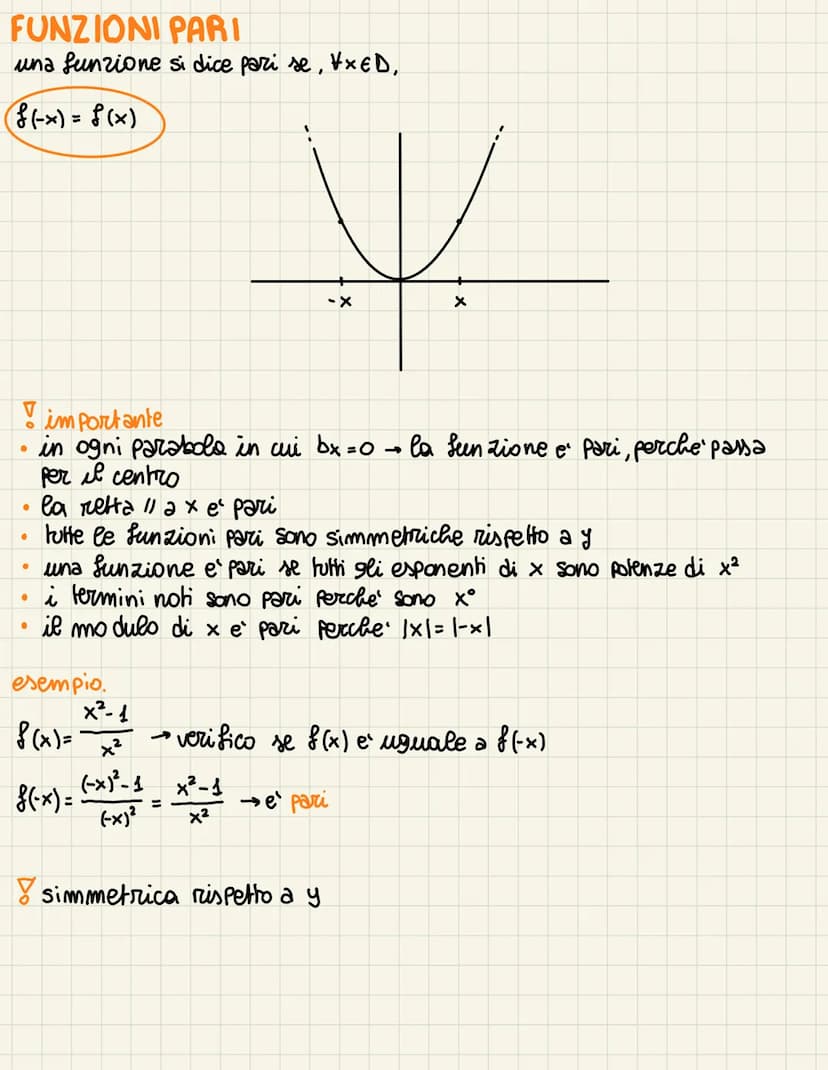 FUNZIONI PARI
una funzione si dice pari se, ∀x∈D,
f(-x) = f(x)
-x x
! importante
• in ogni parabola in cui bx=0 → la funzione e' pari, perche' passa
per il centro
• la retta // a x e' pari
• tutte le funzioni pari sono simmetriche rispetto a y
• una funzione e' pari se tutti gli esponenti di x sono potenze di x²
• i termini noti sono pari perche' sono x°
• il modulo di x e' pari perche' |x|=|-x|
esempio.
f(x)= (x²-1)/x² → verifico se f(x) e' uguale a f(-x)
f(-x)= ((-x)²-1)/(-x)² = (x²-1)/x² → e' pari
! simmetrica rispetto a y